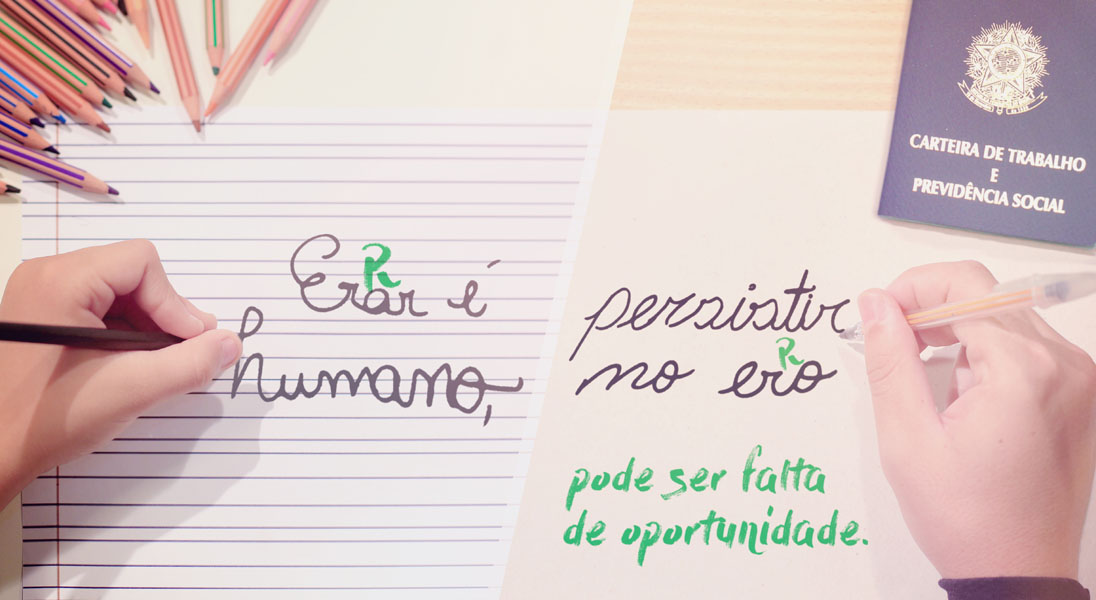 R
Erar é
humano,
CARTEIRA DE TRABALHO
E
PREVIDÊNCIA SOCIAL
persistir
R
no ero
pode ser falta
de oportunidade.